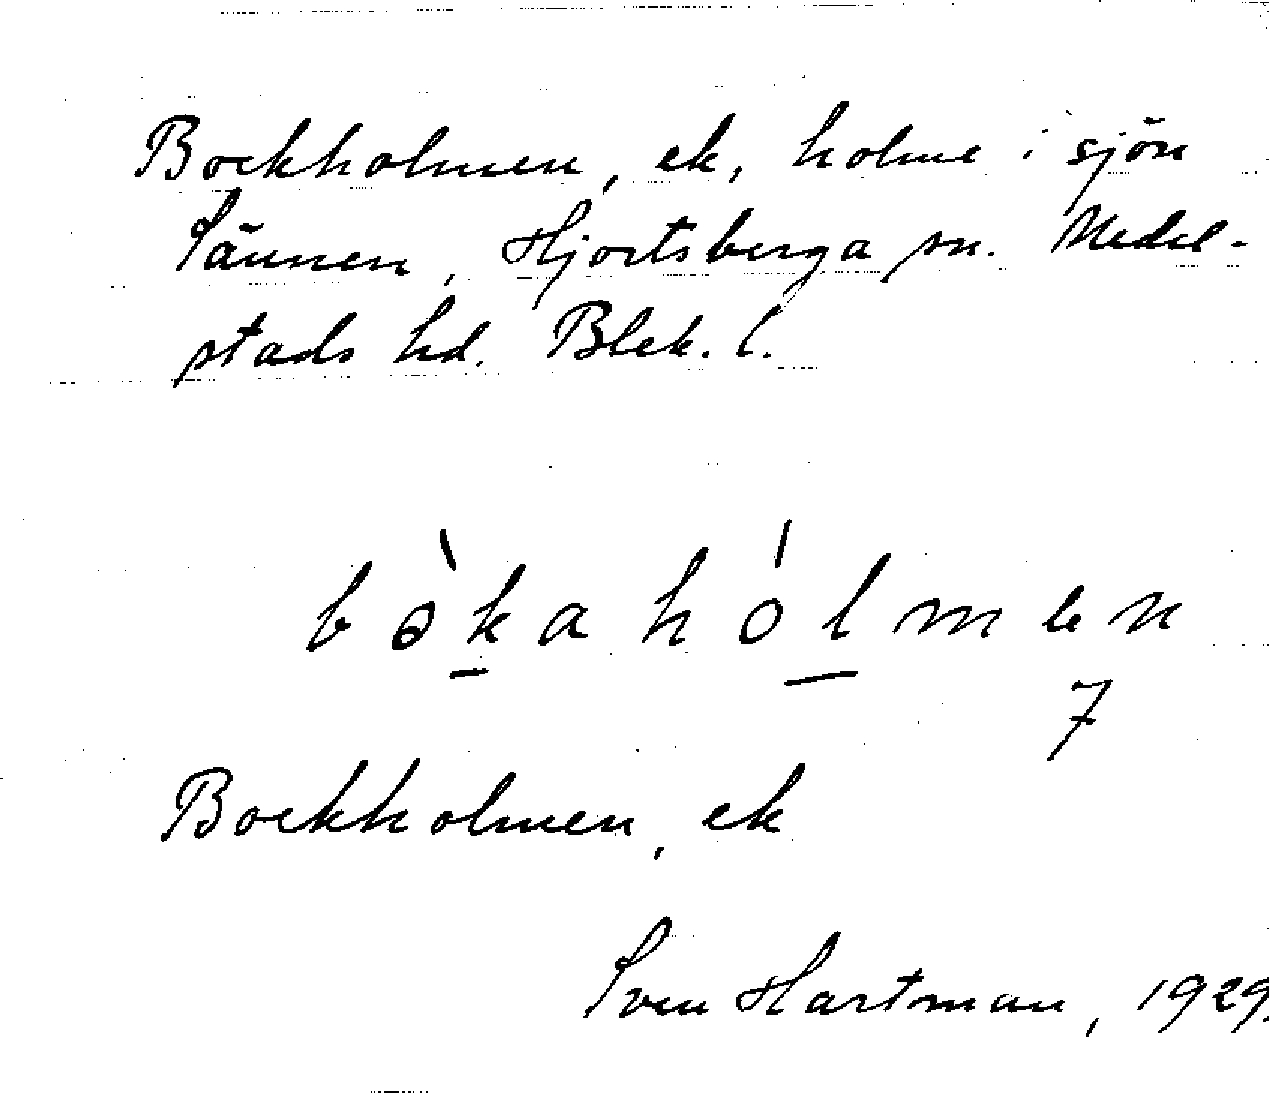 Bockholmen, ek, holme i sjön
Sännen, Hjortsberga sn. Medel-
stads hd. Blek. l.
bòkahólmen
7
Bockholmen, ek
Sven Hartman, 1929.